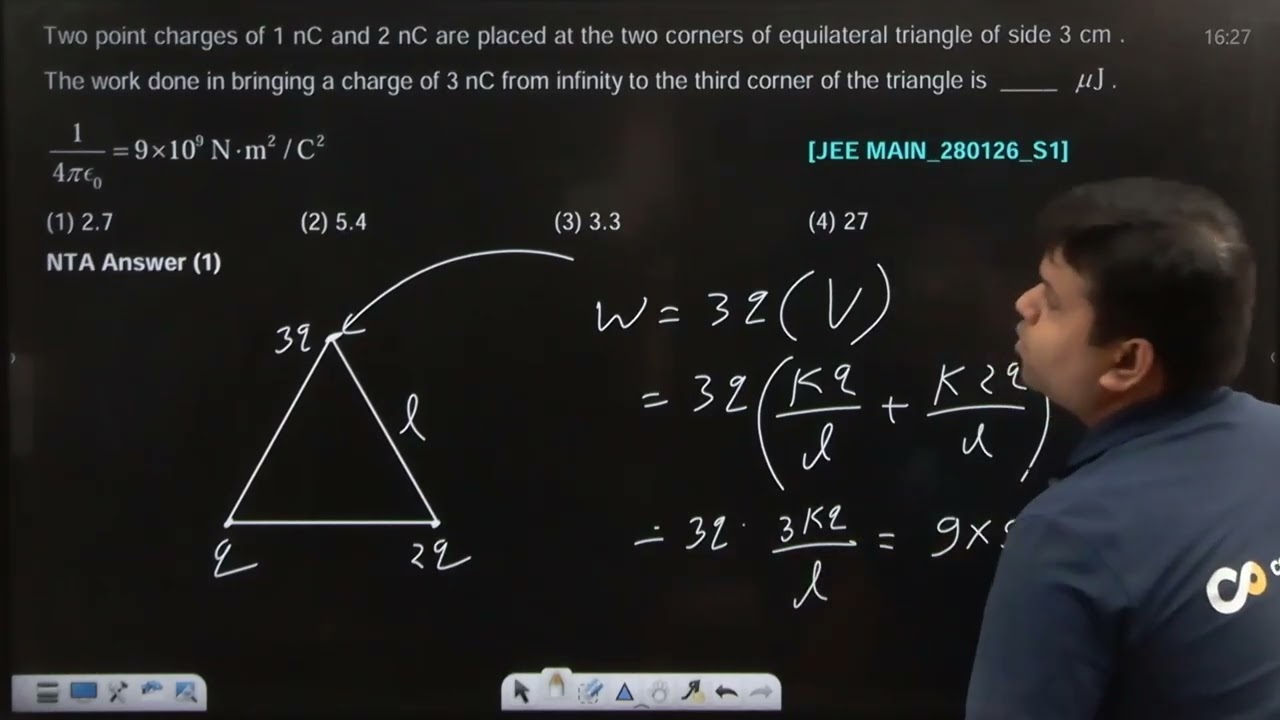 Two point charges of 1 nC and 2 nC are placed at the two corners of equilateral triangle of side 3 cm .
16:27
The work done in bringing a charge of 3 nC from infinity to the third corner of the triangle is ____ μJ .
1/(4πϵ₀) = 9×10⁹ N·m² / C²
[JEE MAIN_280126_S1]
(1) 2.7 (2) 5.4 (3) 3.3 (4) 27
NTA Answer (1)
3q
l
q
2q
W = 3q (V)
= 3q (Kq/l + K2q/l)
= 3q · 3Kq/l = 9×